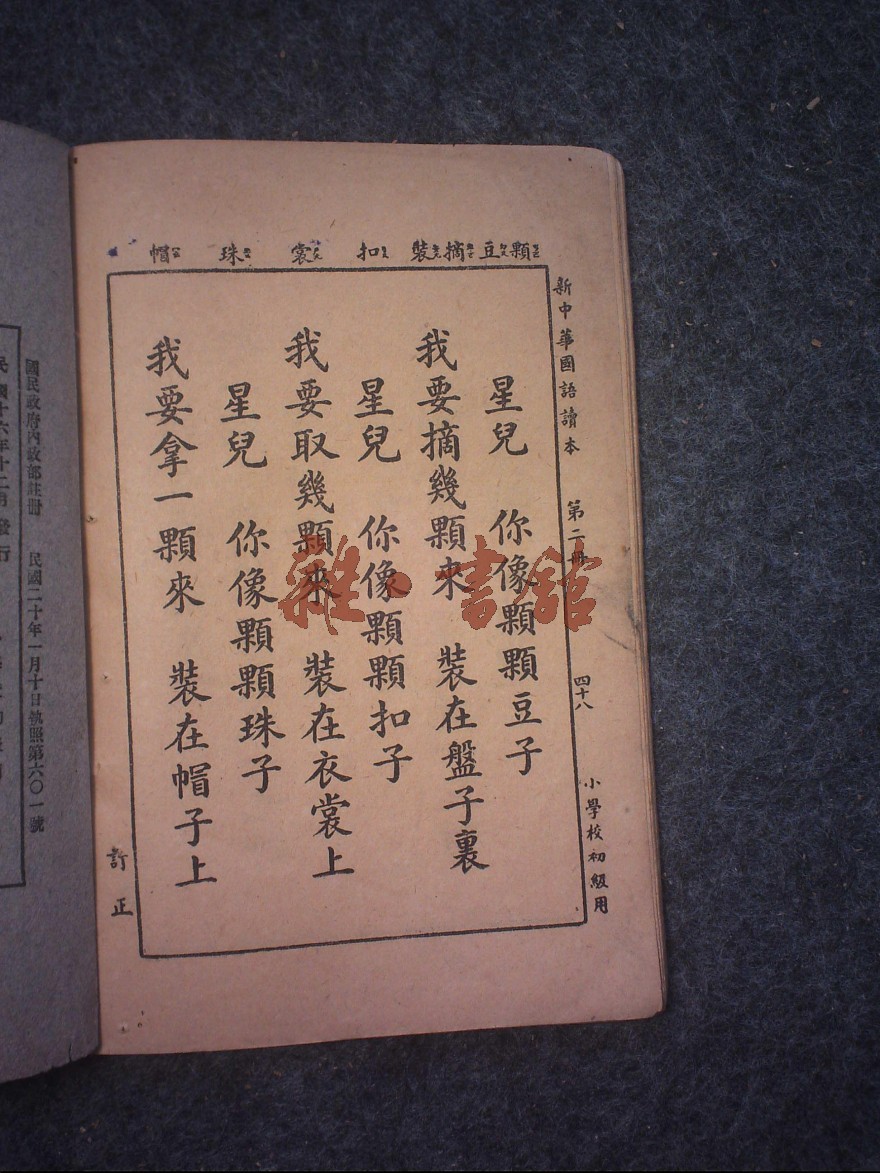 新中華國語讀本 第二冊 四十八 小學校初級用
顆 豆 摘 裝 扣 裳 珠 帽
星兒 你像顆顆豆子
我要摘幾顆來 裝在盤子裏
星兒 你像顆顆扣子
我要取幾顆來 裝在衣裳上
星兒 你像顆顆珠子
我要拿一顆來 裝在帽子上
訂正
國民政府內政部註冊 民國二十年一月十日執照第六〇一號
民國十六年十二月發行
雜 書館